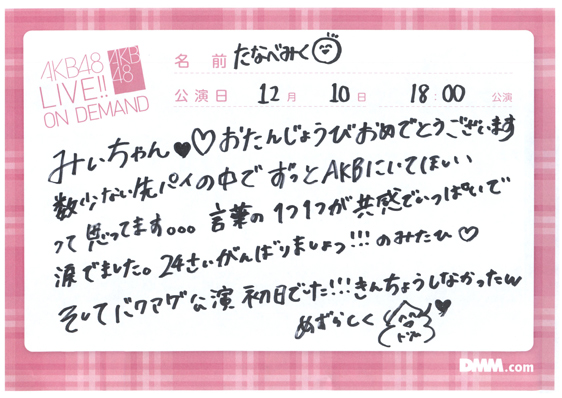 AKB48
LIVE!!
ON DEMAND
AKB
48
名 前 たなべみく
公演日 12月 10日 18:00 公演
みぃちゃん♥♡おたんじょうびおめでとうございます
数少ない先パイの中でずっとAKBにいてほしい
って思ってます。。。言葉の1つ1つが共感でいっぱいで
涙でました。24さいがんばりましょっ!!!のみたひ♡
そしてパクアゲ公演初日でした!!!きんちょうしなかったw
めずらしく
DMM.com